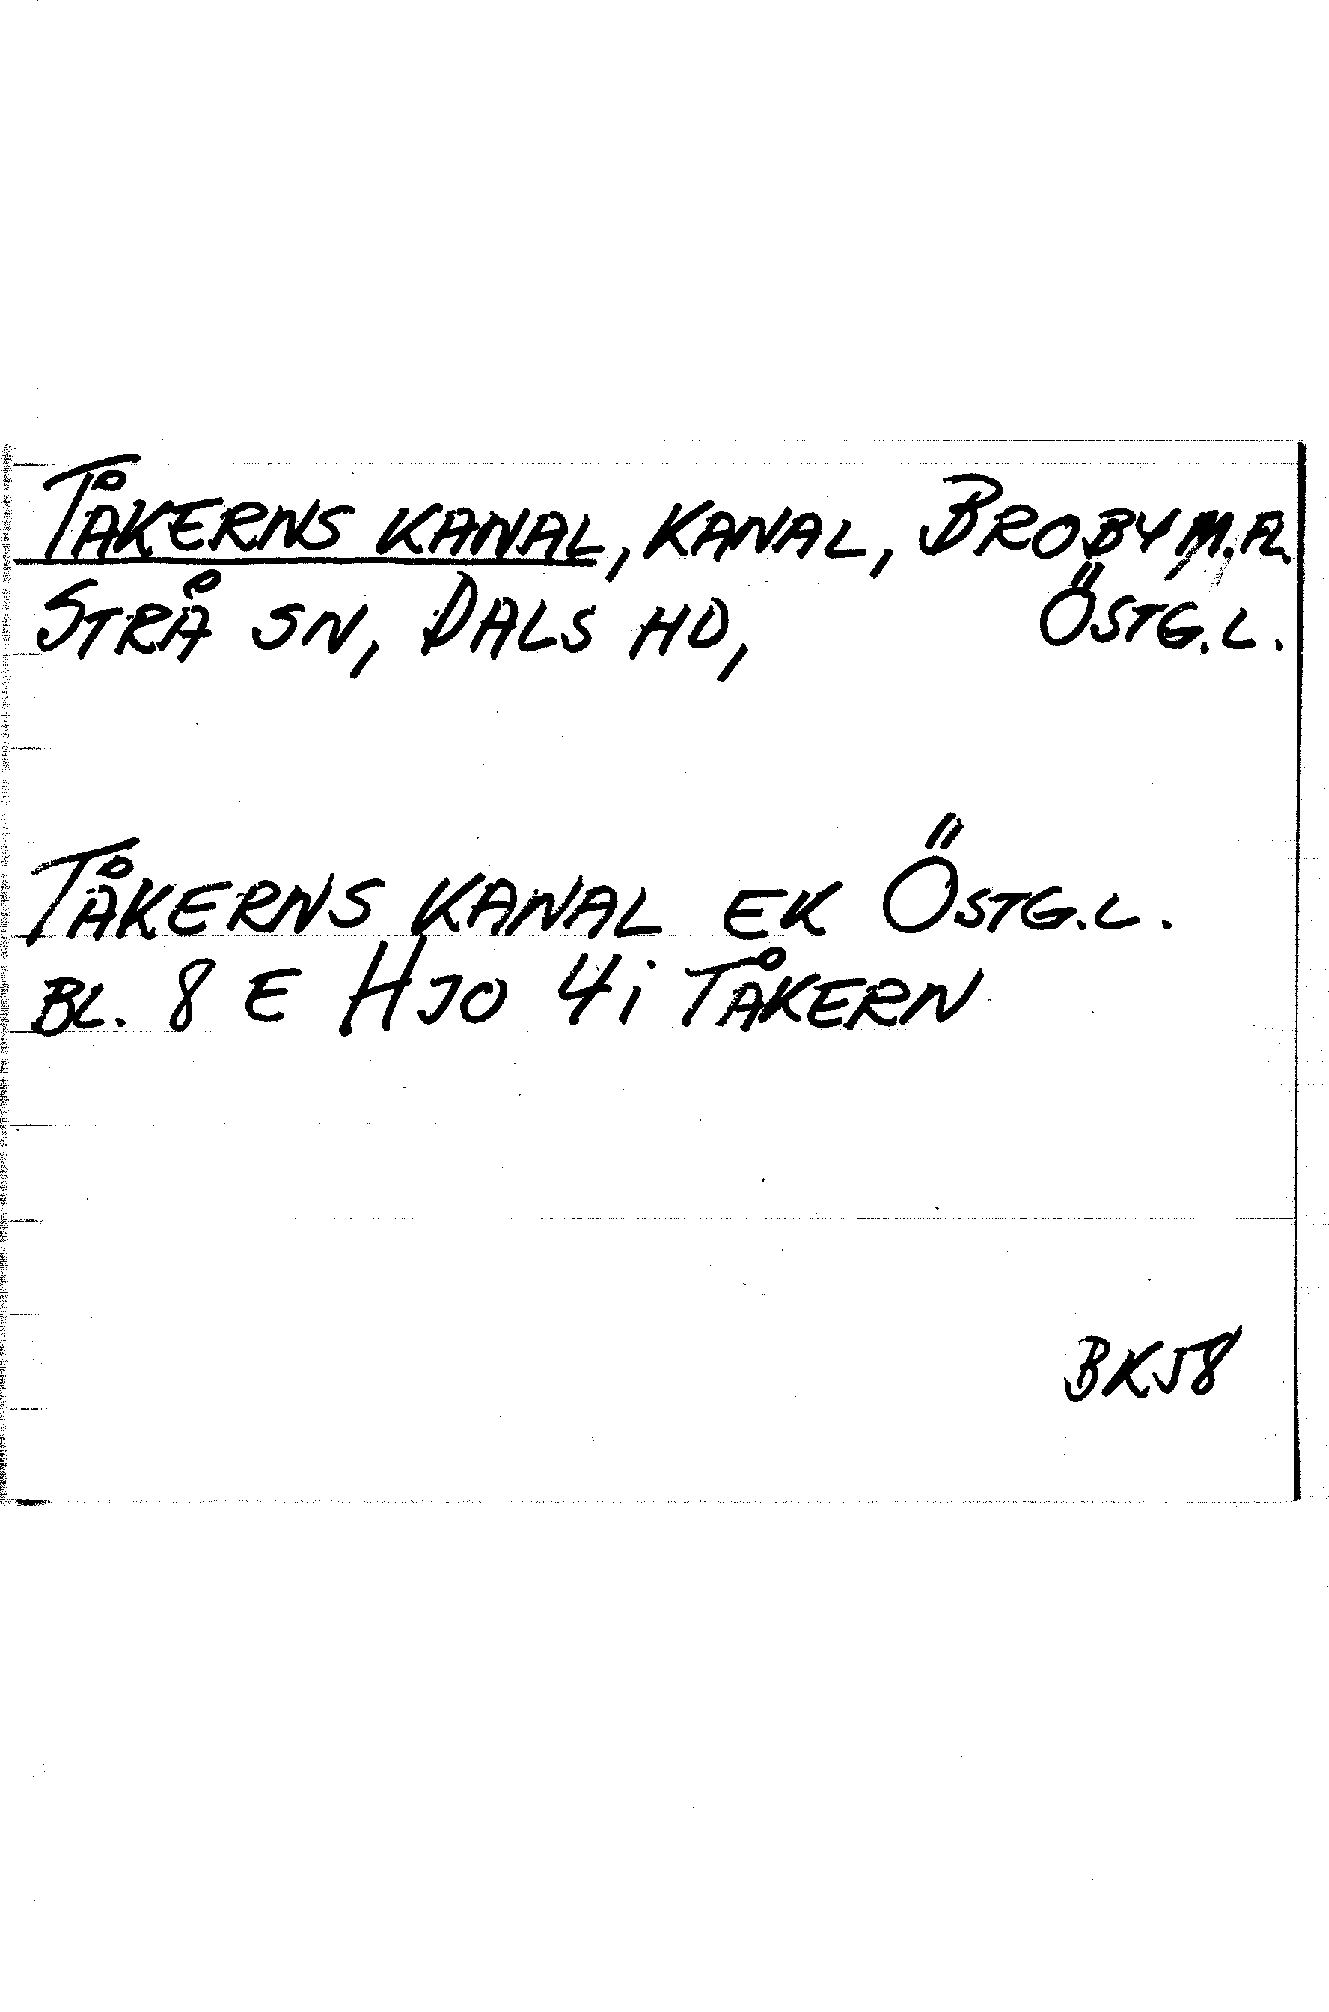 TÅKERNS KANAL, KANAL, BROBY M.FL.
STRÅ SN, DALS HD, ÖSTG.L.
TÅKERNS KANAL EK ÖSTG.L.
BL. 8 E HJO 4i TÅKERN
BK58